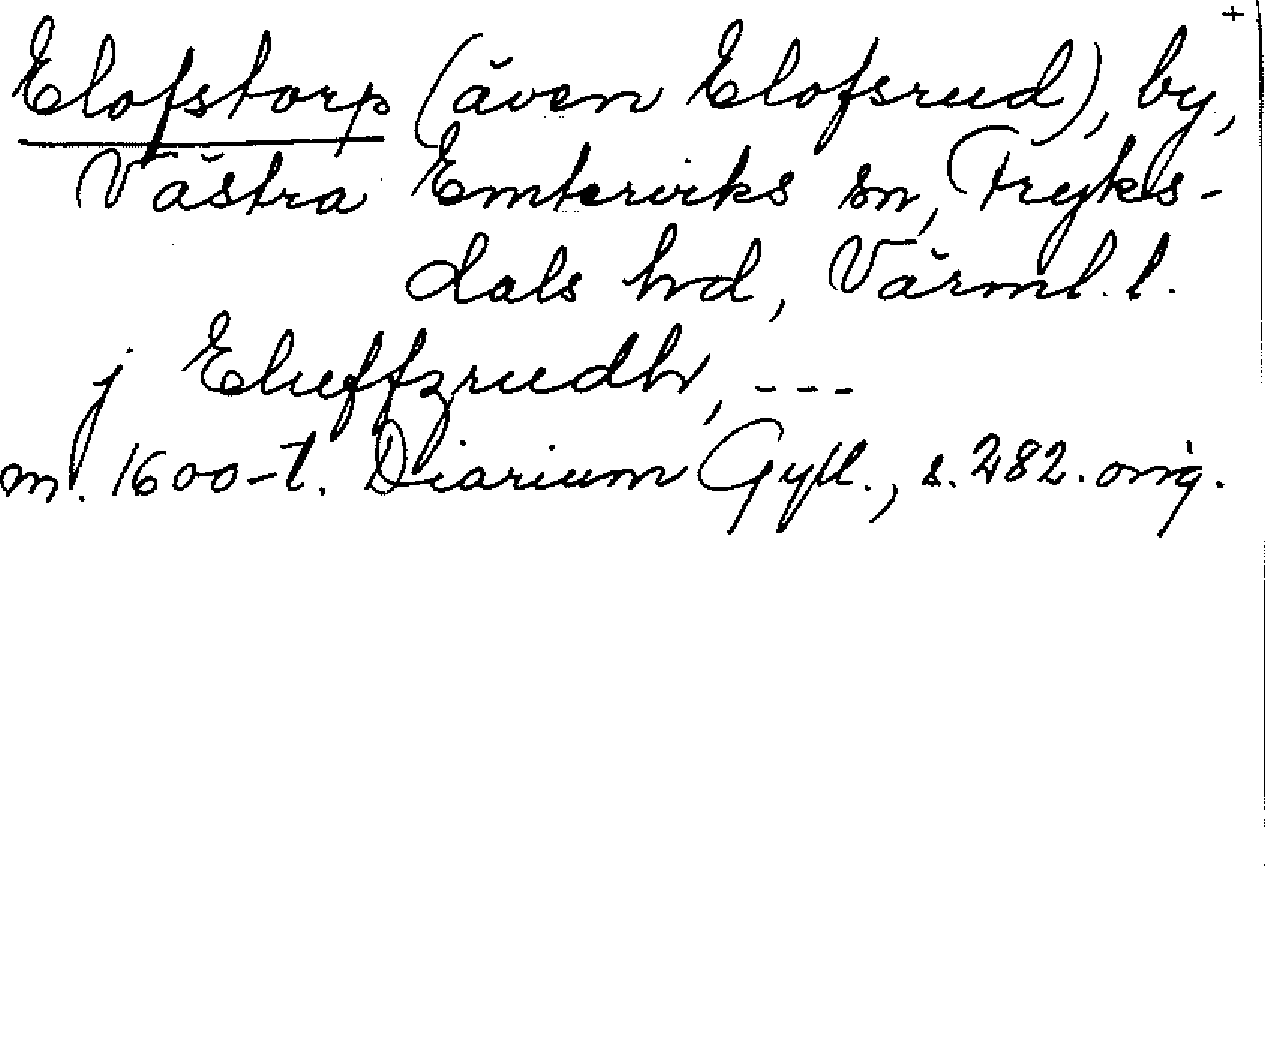 +
Elofstorp (även Elofsrud), by,
Västra Emterviks sn, Fryks-
dals hd, Värml. l.
j Elueffzrudh, ---
m. 1600-t. Diarium Gyll., s. 282. orig.